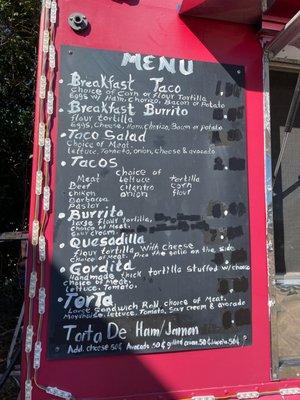 MENU
Breakfast Taco
Choice of Corn or Flour Tortilla
Eggs w/ Ham, Chorizo, Bacon or Potato
Breakfast Burrito
flour tortilla
Eggs, Cheese, Ham, Chorizo, Bacon or potato
Taco Salad
Choice of Meat.
Lettuce, Tomato, onion, cheese & avocado
Tacos
choice of
Meat Lettuce tortilla
Beef cilantro corn
chiken onion flour
Barbacoa
Pastor
Burrito
Large flour tortilla,
choice of Meat.
Sour cream
Quesadilla
flour tortilla with cheese
choice of Meat, Pico de gallo on the side
Gordita
Handmade thick tortilla stuffed w/ choice
choice of Meat.
Lettuce, Tomato.
Torta
Large Sandwich Roll choice of Meat.
Mayonaise, Lettuce, Tomato, Sour cream & avocado
Torta De Ham/Jamon
Add. cheese 50¢ Avocado 50¢ grilled onions .50¢